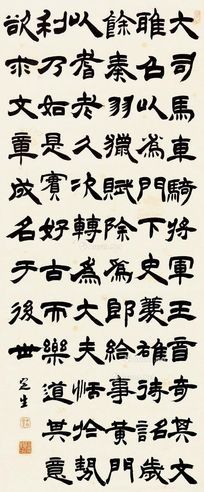 大司馬車騎將軍王音奇其文
雅召以為門下史薦雄待詔歲
餘奏羽獵賦除為郎給事黃門
以耆老久次轉為大夫恬於勢
利乃如是實好古而樂道其意
欲求文章成名于後世